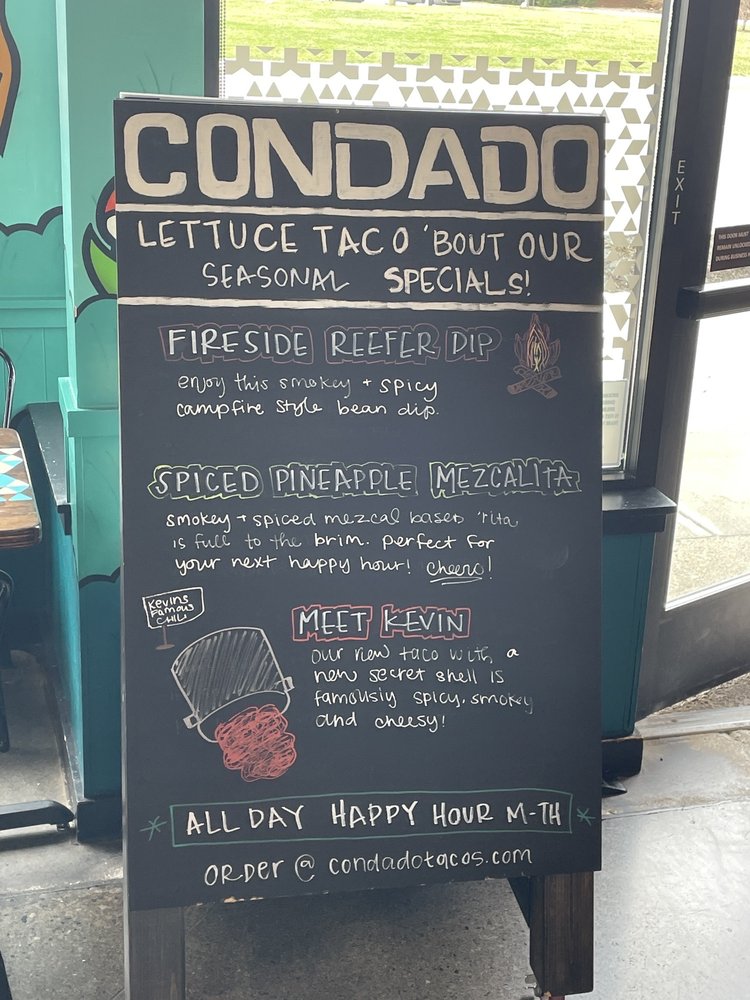 CONDADO
LETTUCE TACO 'BOUT OUR
SEASONAL SPECIALS!
FIRESIDE REEFER DIP
enjoy this smokey + spicy
campfire style bean dip.
SPICED PINEAPPLE MEZCALITA
smokey + spiced mezcal based 'rita
is full to the brim. perfect for
your next happy hour! cheers!
Kevins
Famous
CHILI
MEET KEVIN
our new taco with a
new secret shell is
famously spicy, smokey
and cheesy!
* ALL DAY HAPPY HOUR M-TH *
ORDER @ condadotacos.com
EXIT
THIS DOOR MUST
REMAIN UNLOCKED
DURING BUSINESS